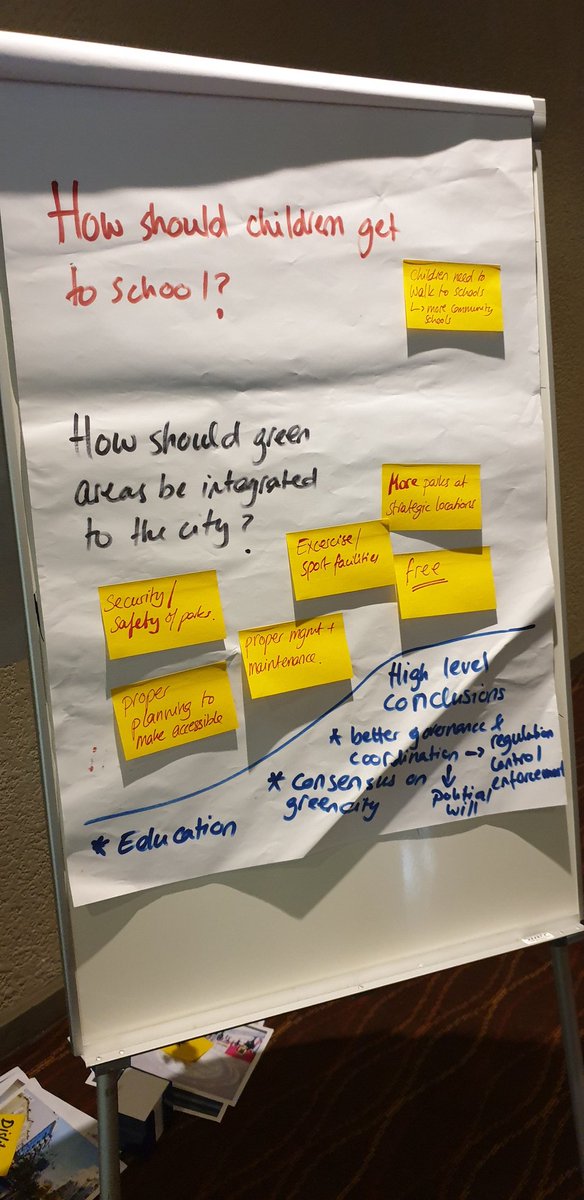 How should children get
to school?
Children need to
walk to schools
↳ more community
schools
How should green
areas be integrated
to the city?
More parks at
strategic locations
Excercise/
sport facilities
free
Security/
safety of parks.
proper mgmt +
maintenance.
proper
planning to
make accessible
High level
conclusions
* better governance &
coordination → regulation
control
enforcement
↓
political
will
* consensus on
green city
* Education